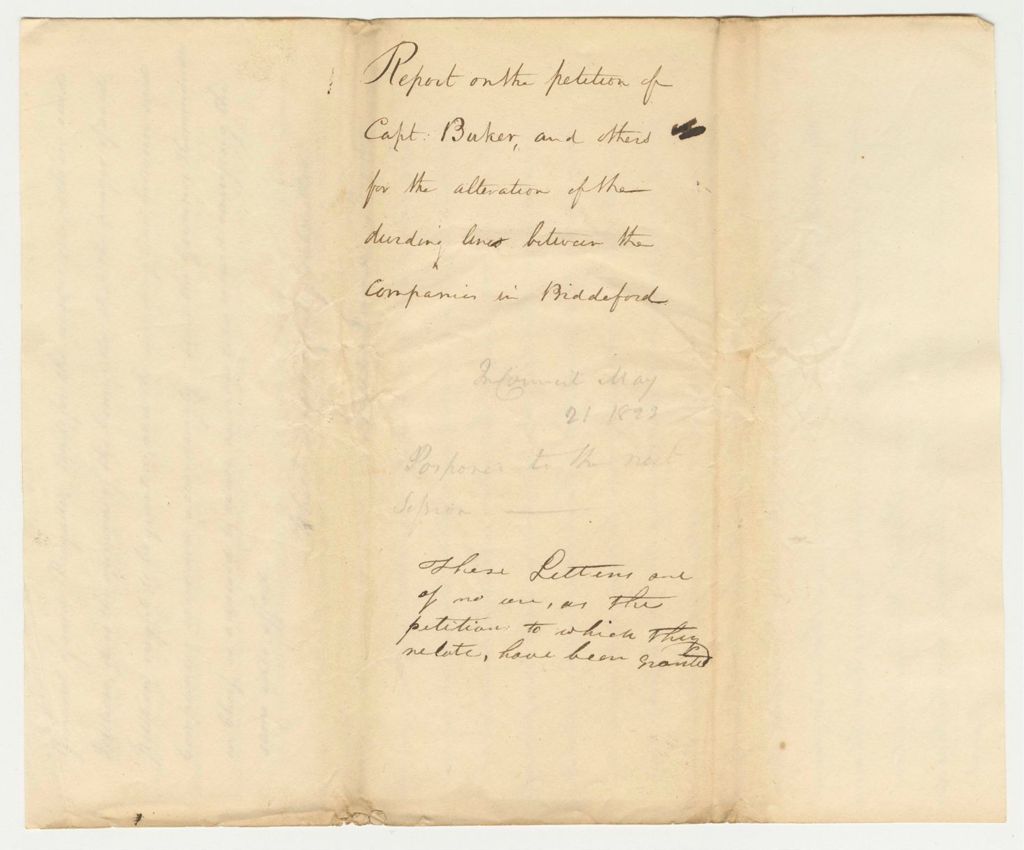 Report on the petition of
Capt. Barker, and others
for the alteration of the
dividing lines between the
Companies in Biddeford
In Council May
21 1823
Posponed to the next
Session
These Letters are
of no use, as the
petitions to which they
relate, have been granted